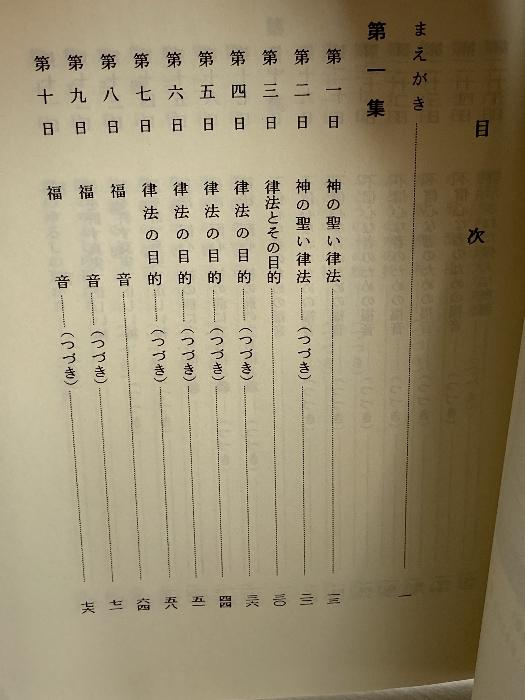 目次
まえがき……一
第一集
第一日 神の聖い律法……一三
第二日 神の聖い律法……(つづき)……二三
第三日 律法とその目的……三〇
第四日 律法の目的……(つづき)……三六
第五日 律法の目的……(つづき)……四四
第六日 律法の目的……(つづき)……五一
第七日 律法の目的……(つづき)……五八
第八日 福音……六四
第九日 福音……(つづき)……七一
第十日 福音……(つづき)……七六